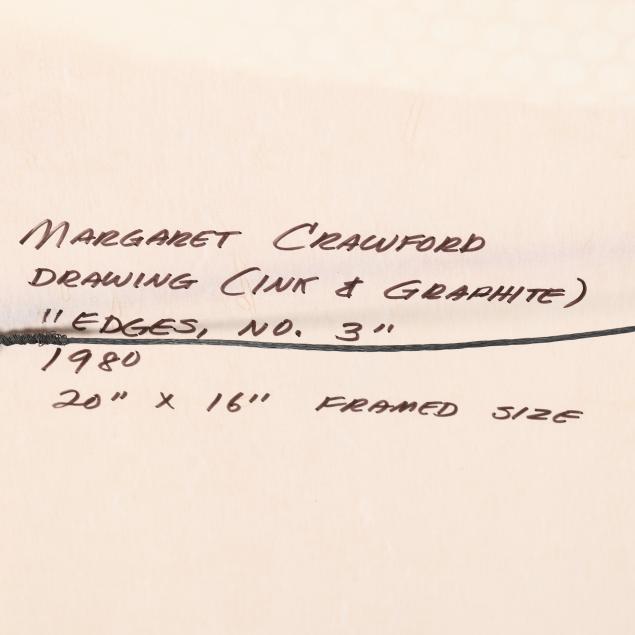 MARGARET CRAWFORD
DRAWING (INK & GRAPHITE)
"EDGES, NO. 3"
1980
20" X 16" FRAMED SIZE